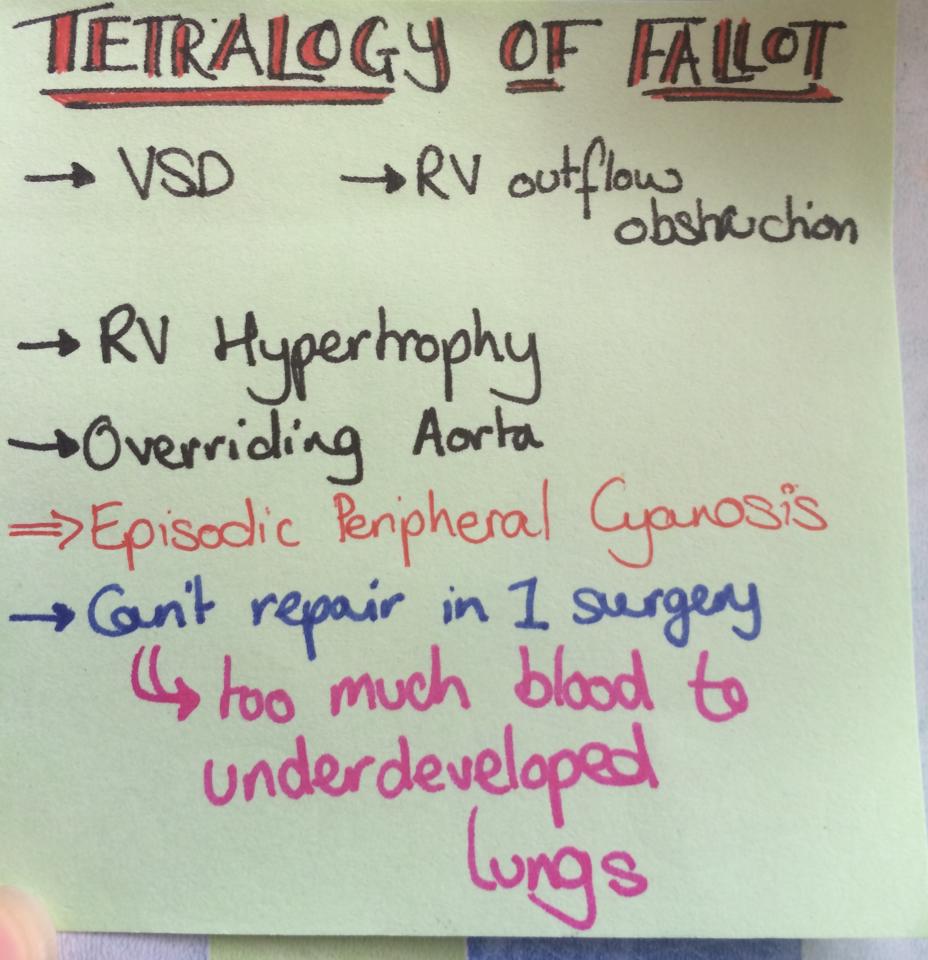 TETRALOGY OF FALLOT
→ VSD → RV outflow
obstruction
→ RV Hypertrophy
→ Overriding Aorta
⇒ Episodic Peripheral Cyanosis
→ Can't repair in 1 surgery
↳ too much blood to
underdeveloped
lungs